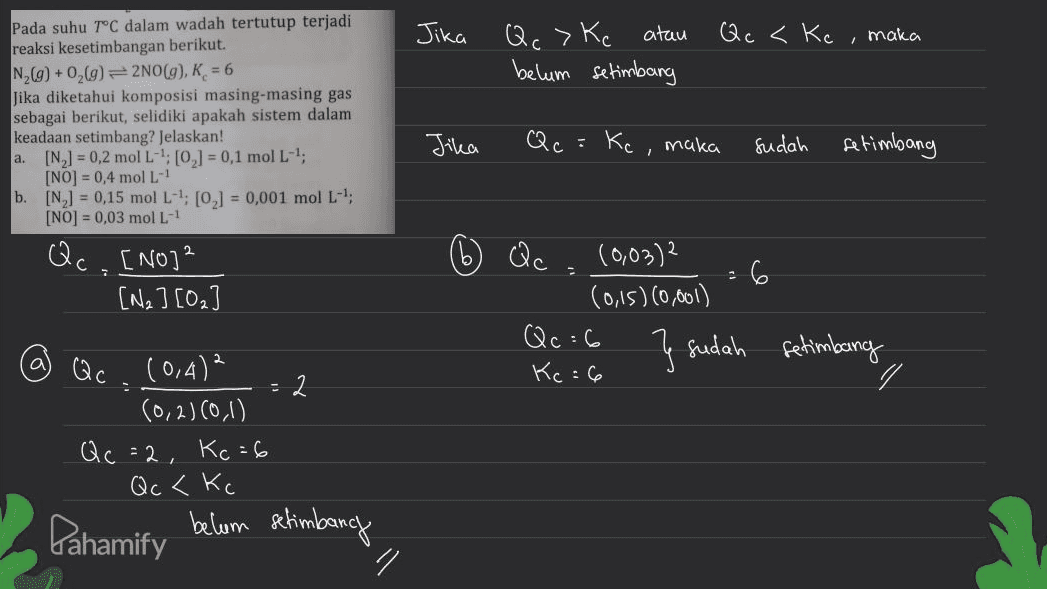 Pada suhu T°C dalam wadah tertutup terjadi
reaksi kesetimbangan berikut.
N₂(g) + O₂(g) ⇌ 2NO(g), K꜀ = 6
Jika diketahui komposisi masing-masing gas
sebagai berikut, selidiki apakah sistem dalam
keadaan setimbang? Jelaskan!
a. [N₂] = 0,2 mol L⁻¹; [O₂] = 0,1 mol L⁻¹;
[NO] = 0,4 mol L⁻¹
b. [N₂] = 0,15 mol L⁻¹; [O₂] = 0,001 mol L⁻¹;
[NO] = 0,03 mol L⁻¹
Jika Qc > Kc atau Qc < Kc, maka
belum setimbang
Jika Qc = Kc, maka sudah setimbang
Qc = [NO]²
[N₂][O₂]
ⓐ Qc = (0,4)² = 2
(0,2)(0,1)
Qc = 2, Kc = 6
Qc < Kc
belum setimbang //
ⓑ Qc = (0,03)² = 6
(0,15)(0,001)
Qc = 6
Kc = 6 } sudah setimbang //
Pahamify